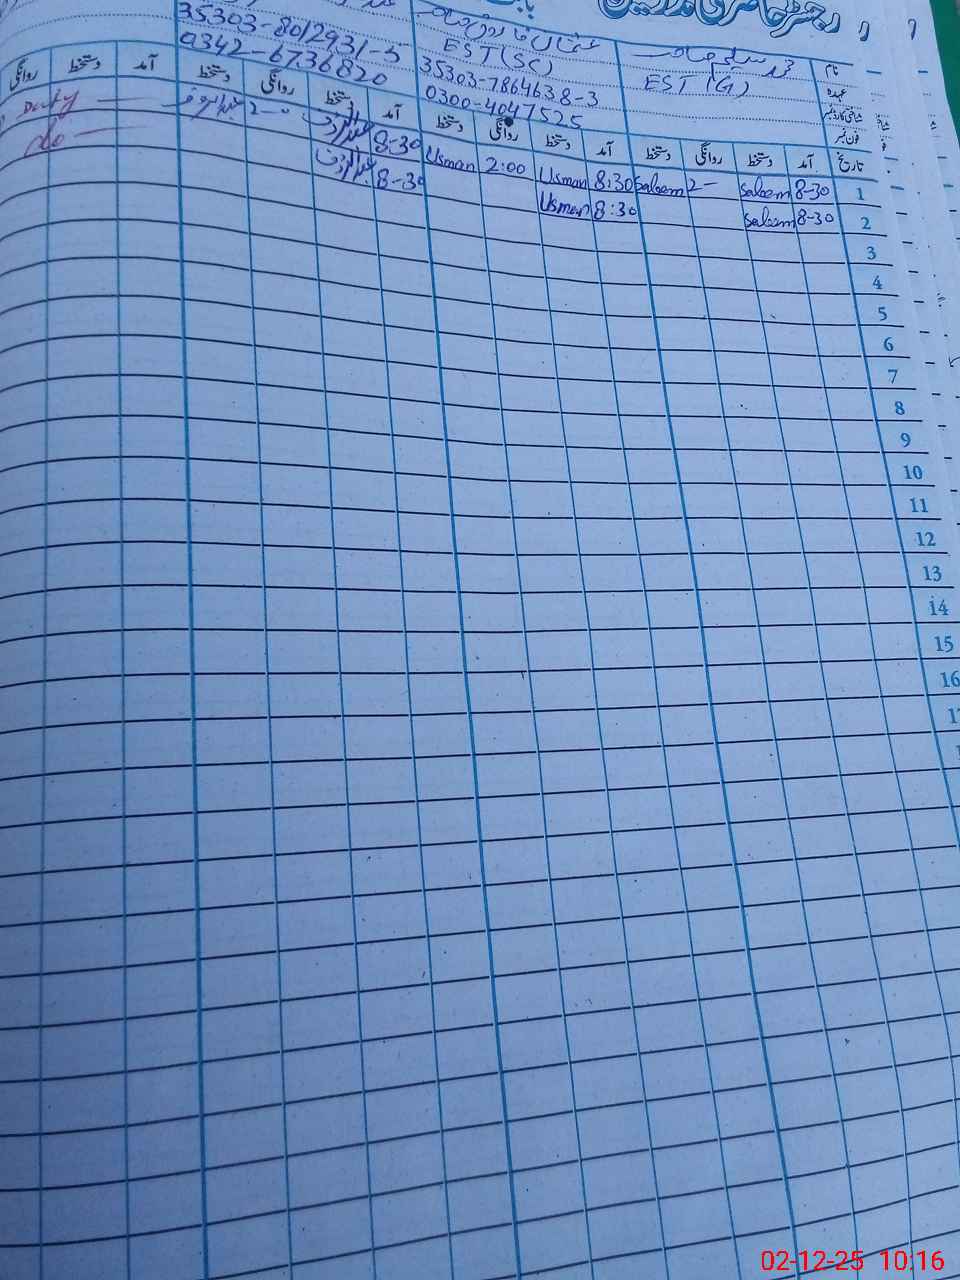 رجسٹر حاضری مدرسین
بابت
نام
محمد سلیم صاحب
عثمان فاروق صاحب
عہدہ
EST (G)
EST (SC)
شناختی کارڈ نمبر
35303-7864638-3
35303-8012931-5
فون نمبر
0300-4047525
0342-6736820
تاریخ آمد دستخط روانگی دستخط آمد دستخط روانگی دستخط آمد دستخط روانگی دستخط آمد دستخط روانگی
1 8-30 Saleem 2- Saleem 8:30 Usman 2:00 Usman 8-30 عبدالرؤف 2-0 عبدالرؤف Duty
2 8-30 Saleem 8:30 Usman 8-30 عبدالرؤف do
3
4
5
6
7
8
9
10
11
12
13
14
15
16
02-12-25 10:16